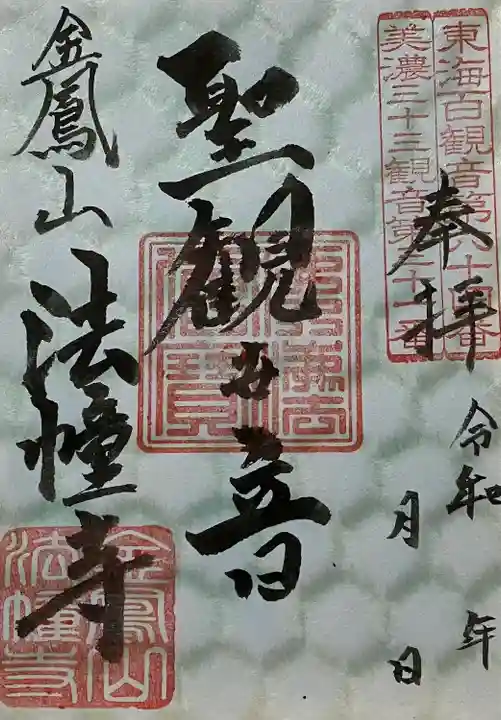 東海百観音第六十四番
美濃三十三観音第三十一番
奉拝
令和 年
月 日
聖観世音
金鳳山
法幢寺
佛法僧寶
金鳳山
法幢寺